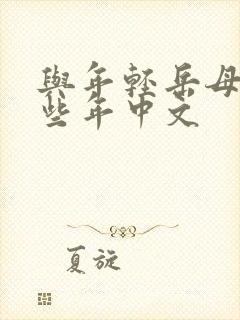 與年輕岳母
些年中文
夏旋